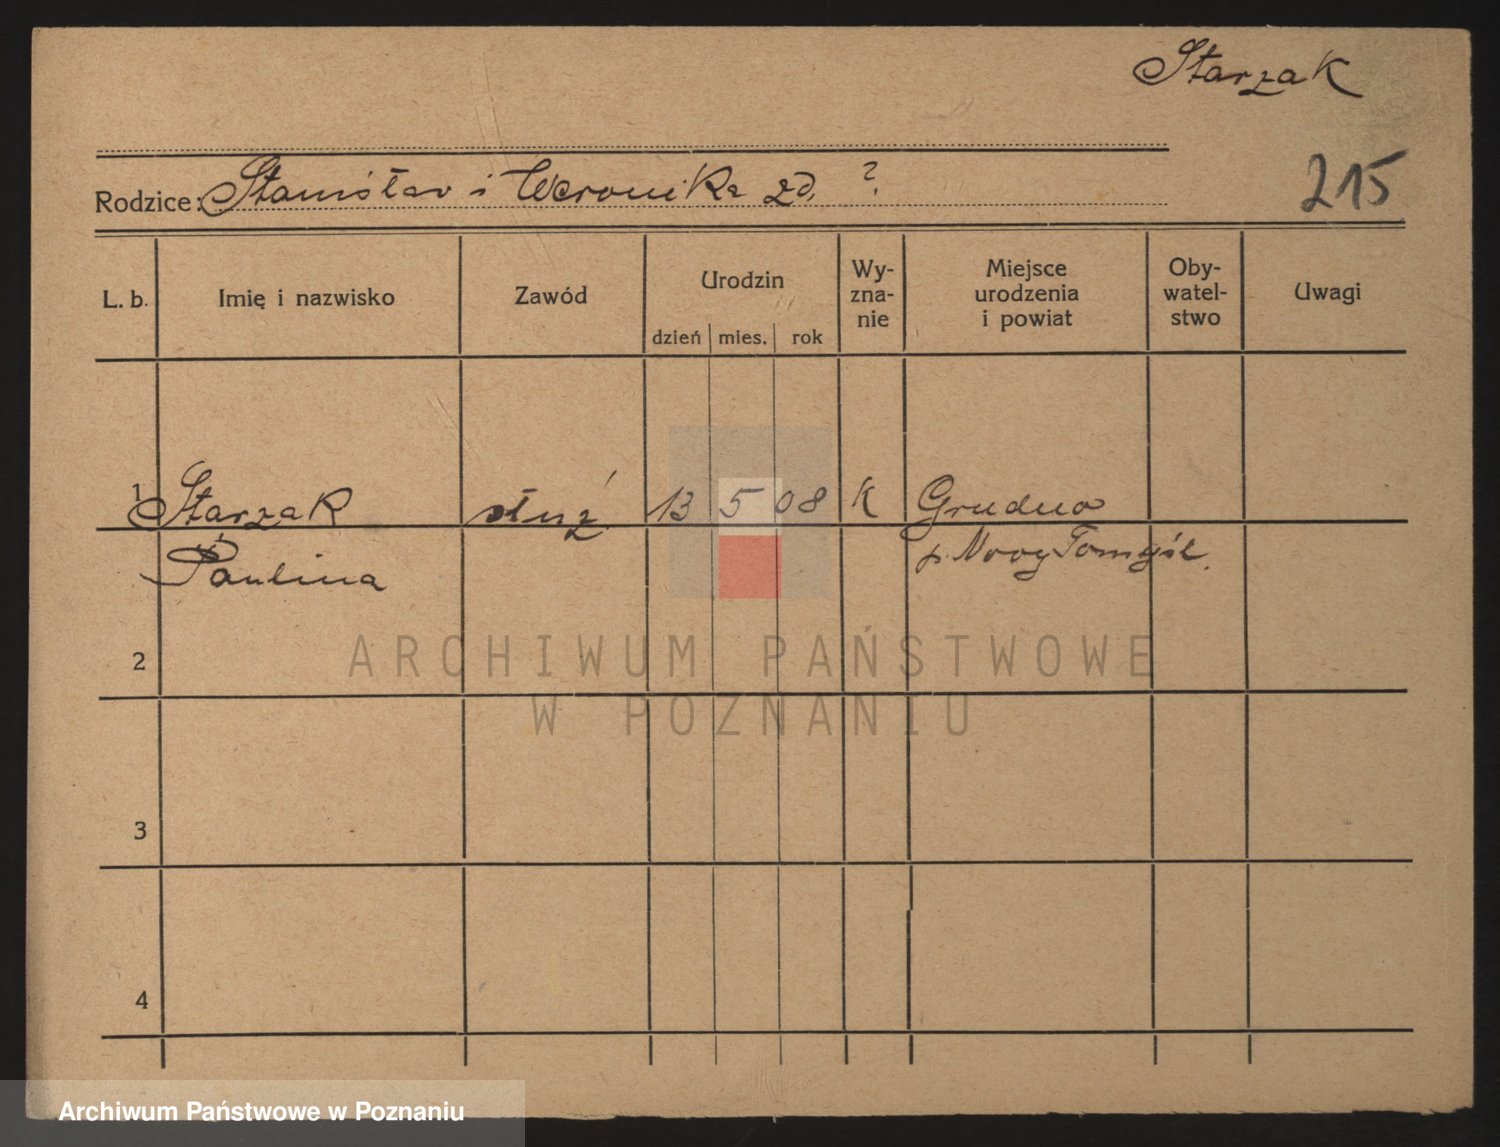 Starzak
215
Rodzice: Stanisław i Weronika zd. ?
L. b. Imię i nazwisko Zawód Urodzin dzień mies. rok Wy-zna-nie Miejsce urodzenia i powiat Oby-watel-stwo Uwagi
1 Starzak służ. 13 5 08 K Grudno
Paulina p. Nowy Tomyśl.
2
ARCHIWUM PAŃSTWOWE
W POZNANIU
3
4
Archiwum Państwowe w Poznaniu